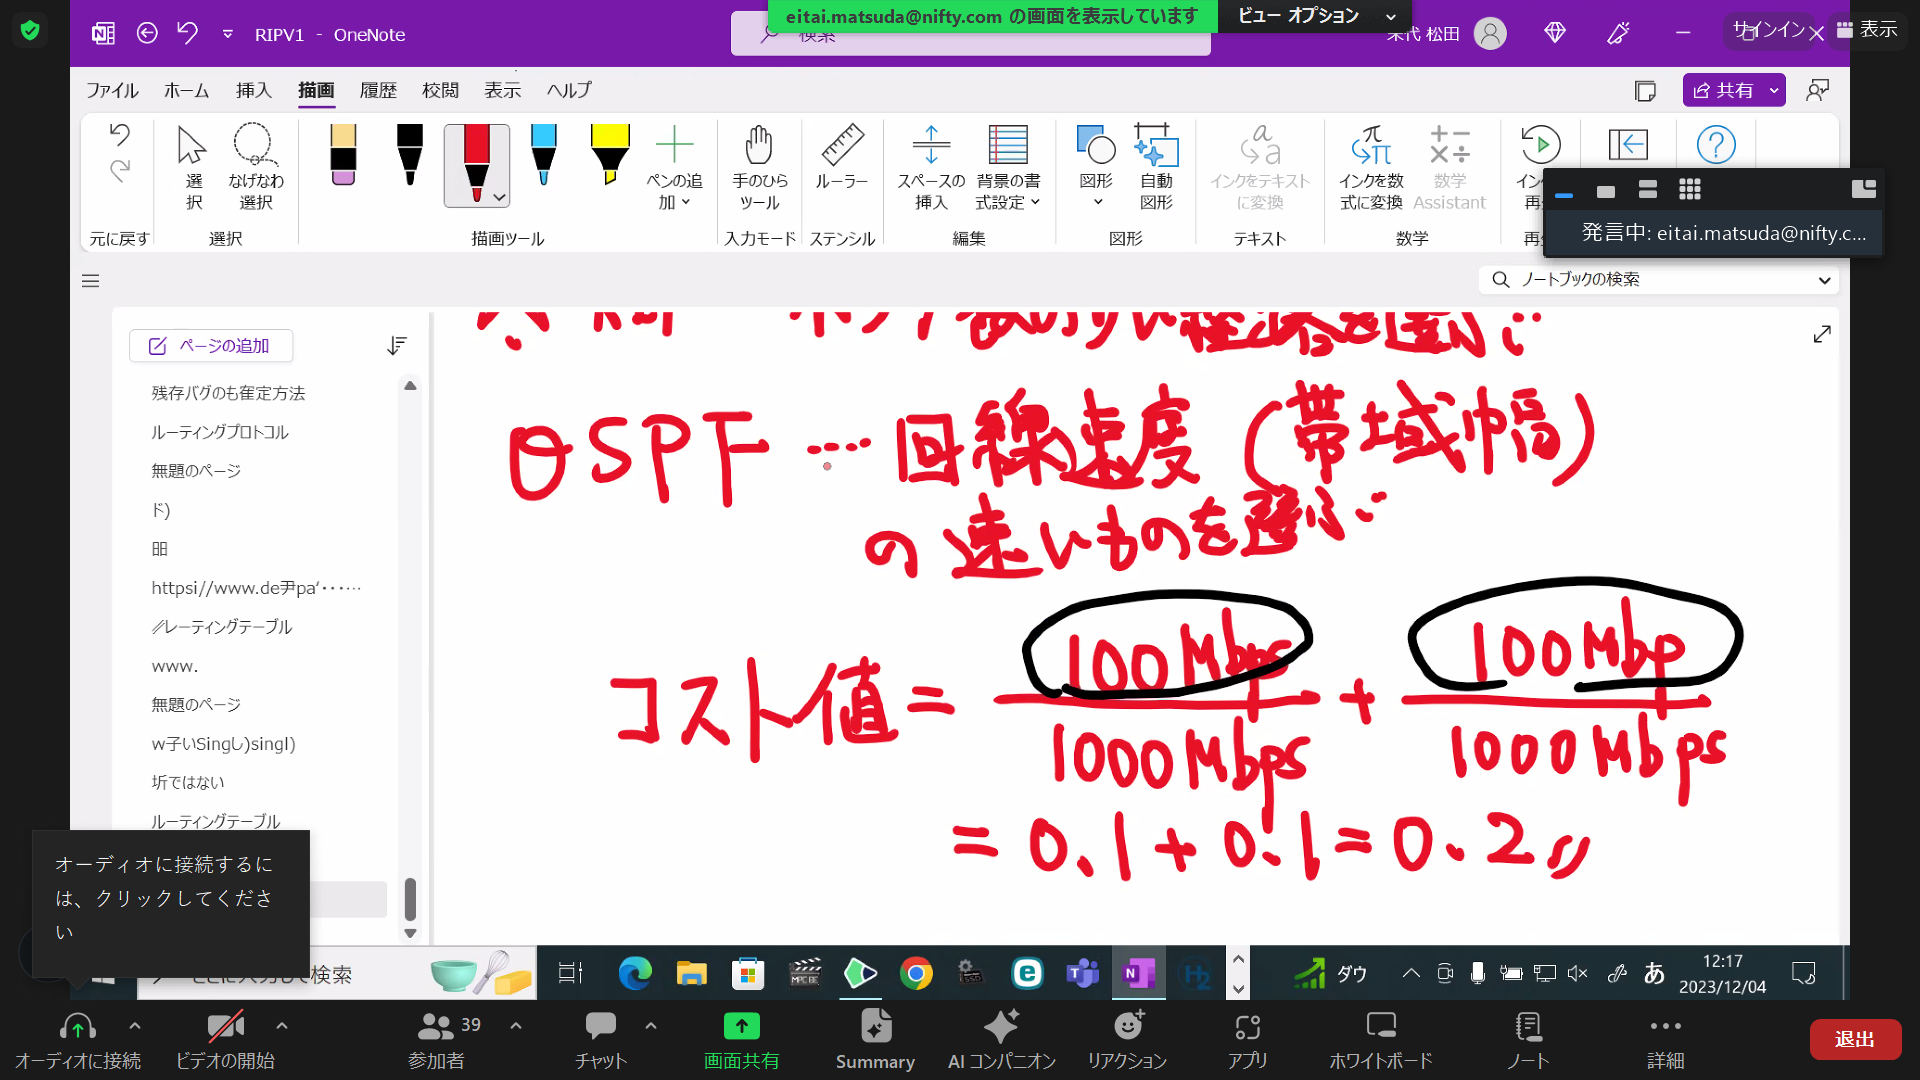 eitai.matsuda@nifty.com の画面を表示しています
ビュー オプション
RIPV1 - OneNote
検索
末代 松田
サインイン
表示
ファイル ホーム 挿入 描画 履歴 校閲 表示 ヘルプ
共有
選択
なげなわ選択
ペンの追加
手のひらツール
ルーラー
スペースの挿入
背景の書式設定
図形
自動図形
インクをテキストに変換
インクを数式に変換
数学 Assistant
元に戻す
選択
描画ツール
入力モード
ステンシル
編集
図形
テキスト
数学
発言中: eitai.matsuda@nifty.c...
ノートブックの検索
ページの追加
残存バグのも隺定方法
ルーティングプロトコル
無題のページ
ド)
昍
httpsi//www.de尹pa'･･･…
∥レーティングテーブル
www.
無題のページ
w子いSingし)singl)
圻ではない
ルーティングテーブル
OSPF …回線速度(帯域幅)
の速いものを選ぶ
コスト値 = 100Mbps / 1000Mbps + 100Mbp / 1000Mbps
= 0.1 + 0.1 = 0.2
オーディオに接続するに
は、クリックしてくださ
い
ここに入力して検索
ダウ
あ
12:17
2023/12/04
オーディオに接続
ビデオの開始
39
参加者
チャット
画面共有
Summary
AI コンパニオン
リアクション
アプリ
ホワイトボード
ノート
詳細
退出